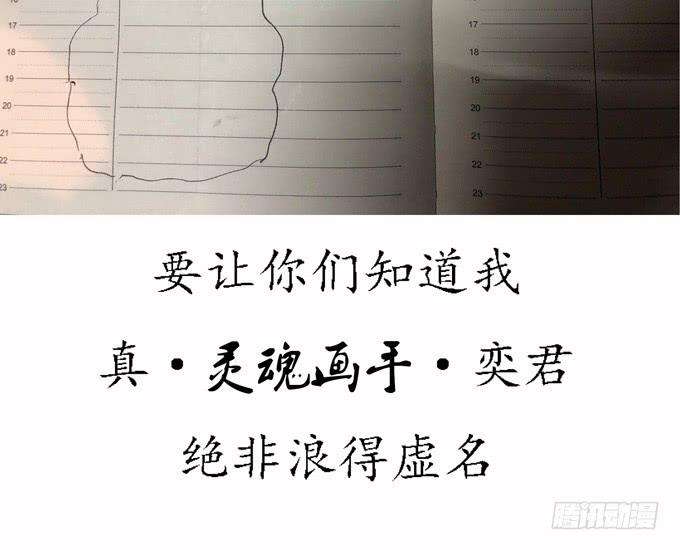 16
17
17
18
18
19
19
20
20
21
21
22
22
23
23
要让你们知道我
真·灵魂画手·奕君
绝非浪得虚名
腾讯动漫